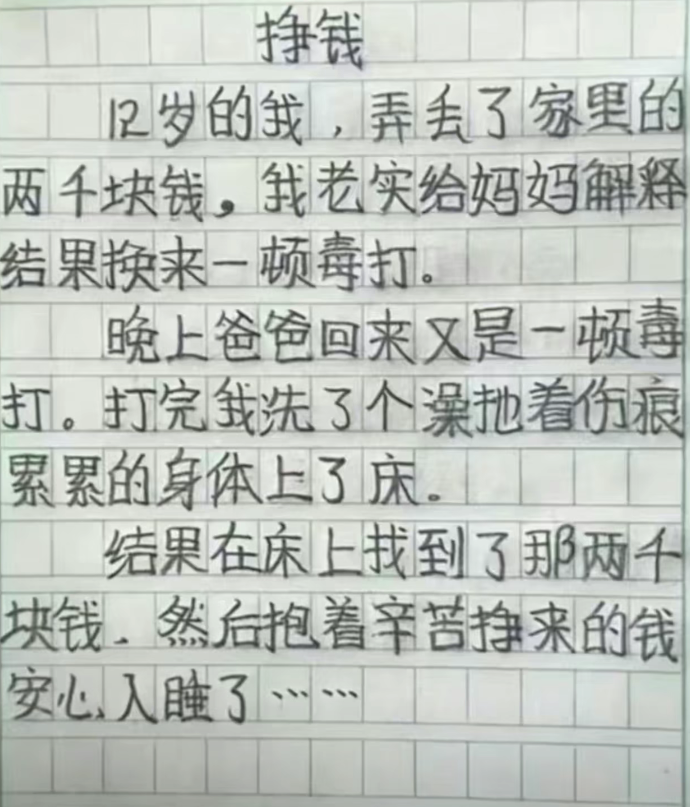 挣钱
12岁的我，弄丢了家里的
两千块钱。我老实给妈妈解释
结果换来一顿毒打。
晚上爸爸回来又是一顿毒
打。打完我洗了个澡扡着伤痕
累累的身体上了床。
结果在床上找到了那两千
块钱．然后抱着辛苦挣来的钱
安心入睡了……